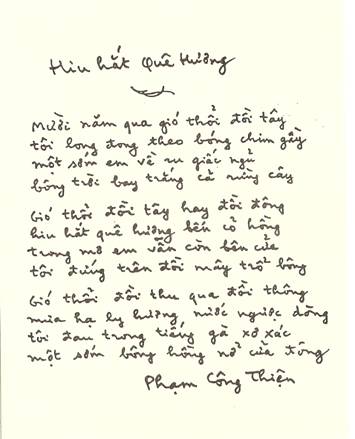 Hiu hắt Quê Hương
Mười năm qua gió thổi đồi tây
tôi long đong theo bóng chim gầy
một sớm em về ru giấc ngủ
bông trời bay trắng cả rừng cây
Gió thổi đồi tây hay đồi đông
hiu hắt quê hương bến cỏ hồng
trong mơ em vẫn còn bên cửa
tôi đứng trên đồi mây trổ bông
Gió thổi đồi thu qua đồi thông
mưa hạ ly hương nước ngược dòng
tôi đau trong tiếng gà xơ xác
một sớm bông hồng nở cửa đông
Phạm Công Thiện